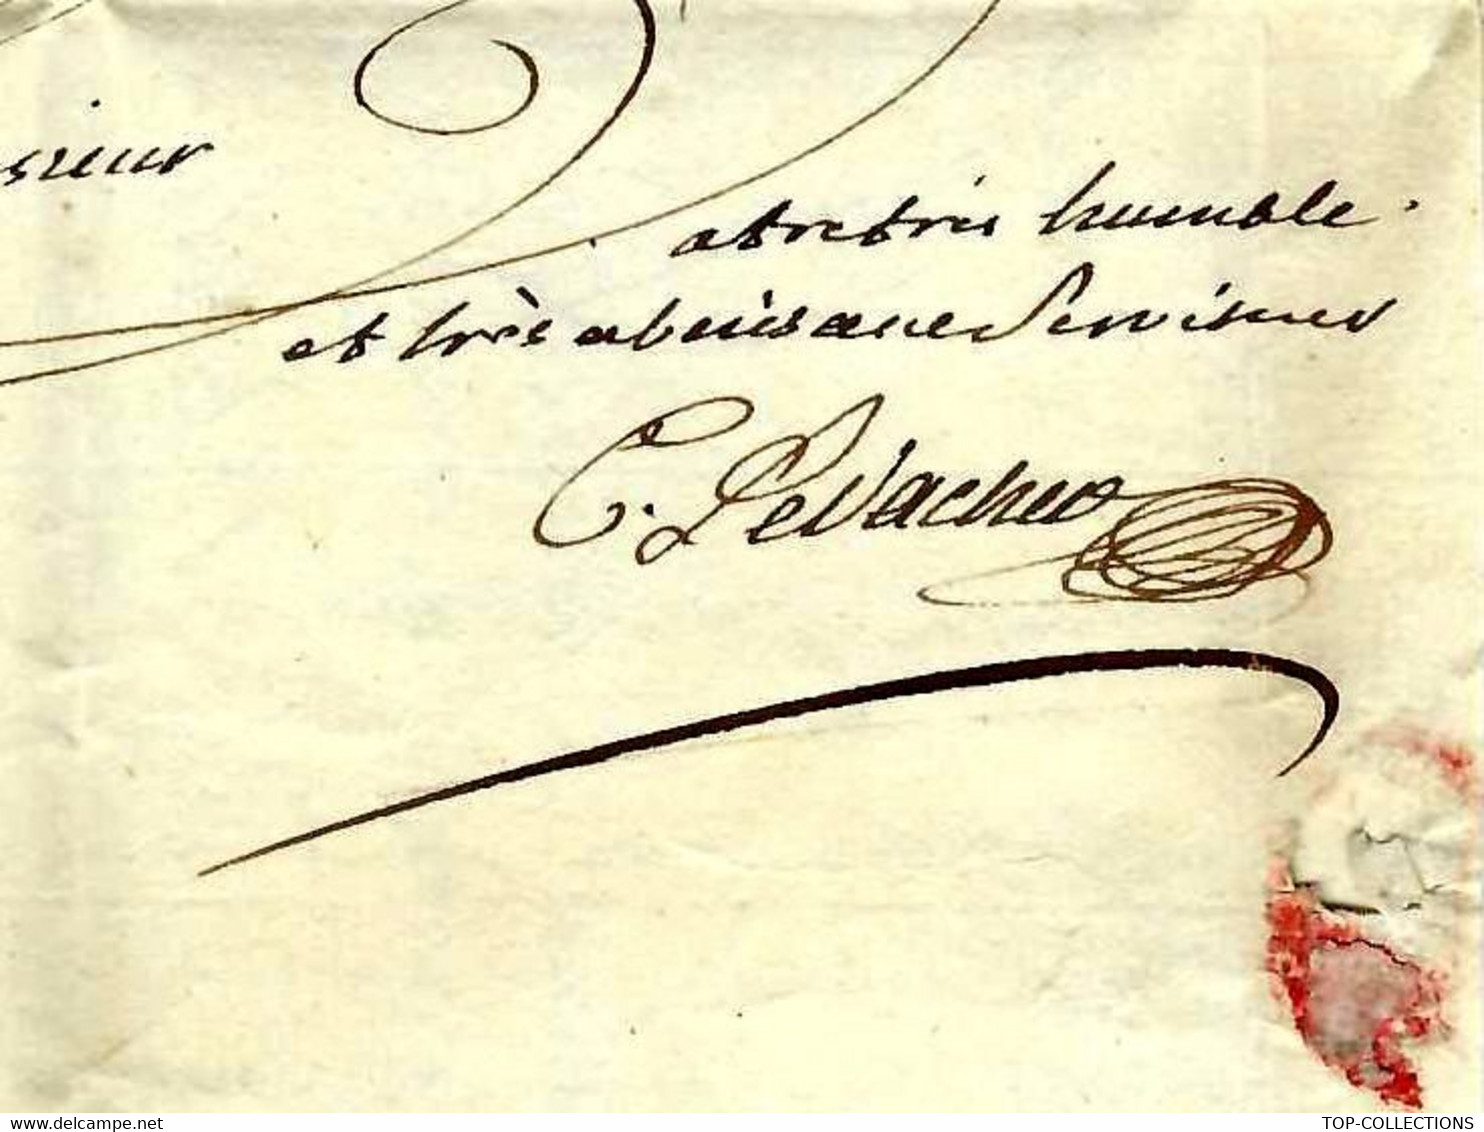 sieur
votre très humble
et très obeissance Serviteur
C. LeVacher
www.delcampe.net
TOP-COLLECTIONS